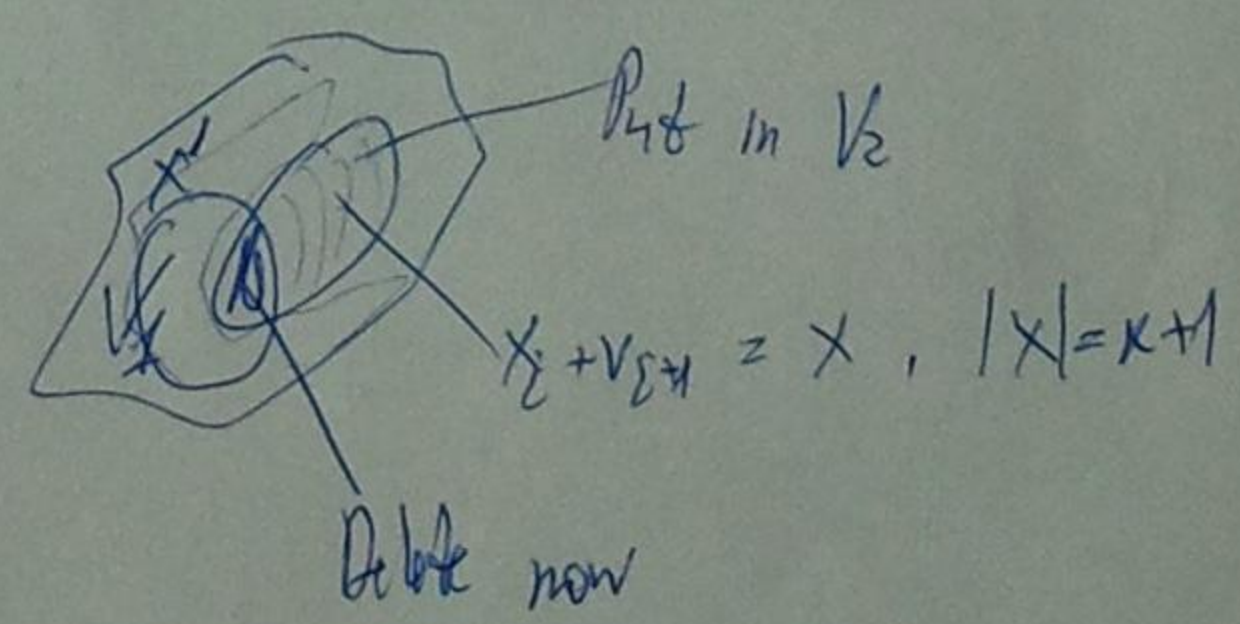 Put in V₂
X'
X_i + V_{i+1} = X, |X| = k+1
Delete now